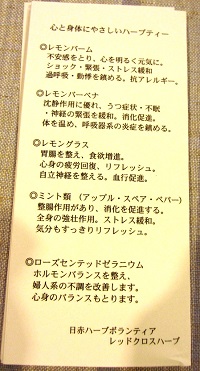 心と身体にやさしいハーブティー
◎レモンバーム
不安感をとり、心を明るく元気に。
ショック・緊張・ストレス緩和
過呼吸・動悸を鎮める。抗アレルギー。
◎レモンバーベナ
沈静作用に優れ、うつ症状・不眠
・神経の緊張を緩和。消化促進。
体を温め、呼吸器系の炎症を鎮める。
◎レモングラス
胃腸を整え、食欲増進。
心身の疲労回復、リフレッシュ。
自立神経を整える。血行促進。
◎ミント類 (アップル・スペア・ペパー)
整腸作用があり、消化を促進する。
全身の強壮作用。ストレス緩和。
気分もすっきりリフレッシュ。
◎ローズセンテッドゼラニウム
ホルモンバランスを整え、
婦人系の不調を改善します。
心身のバランスもとります。
日赤ハーブボランティア
レッドクロスハーブ